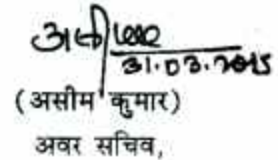 31.03.2015
(असीम कुमार)
अवर सचिव,